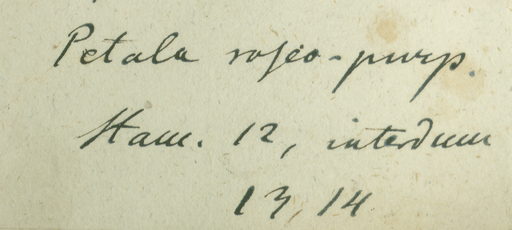 Petala roseo-purp.
Stam. 12, interdum
13, 14